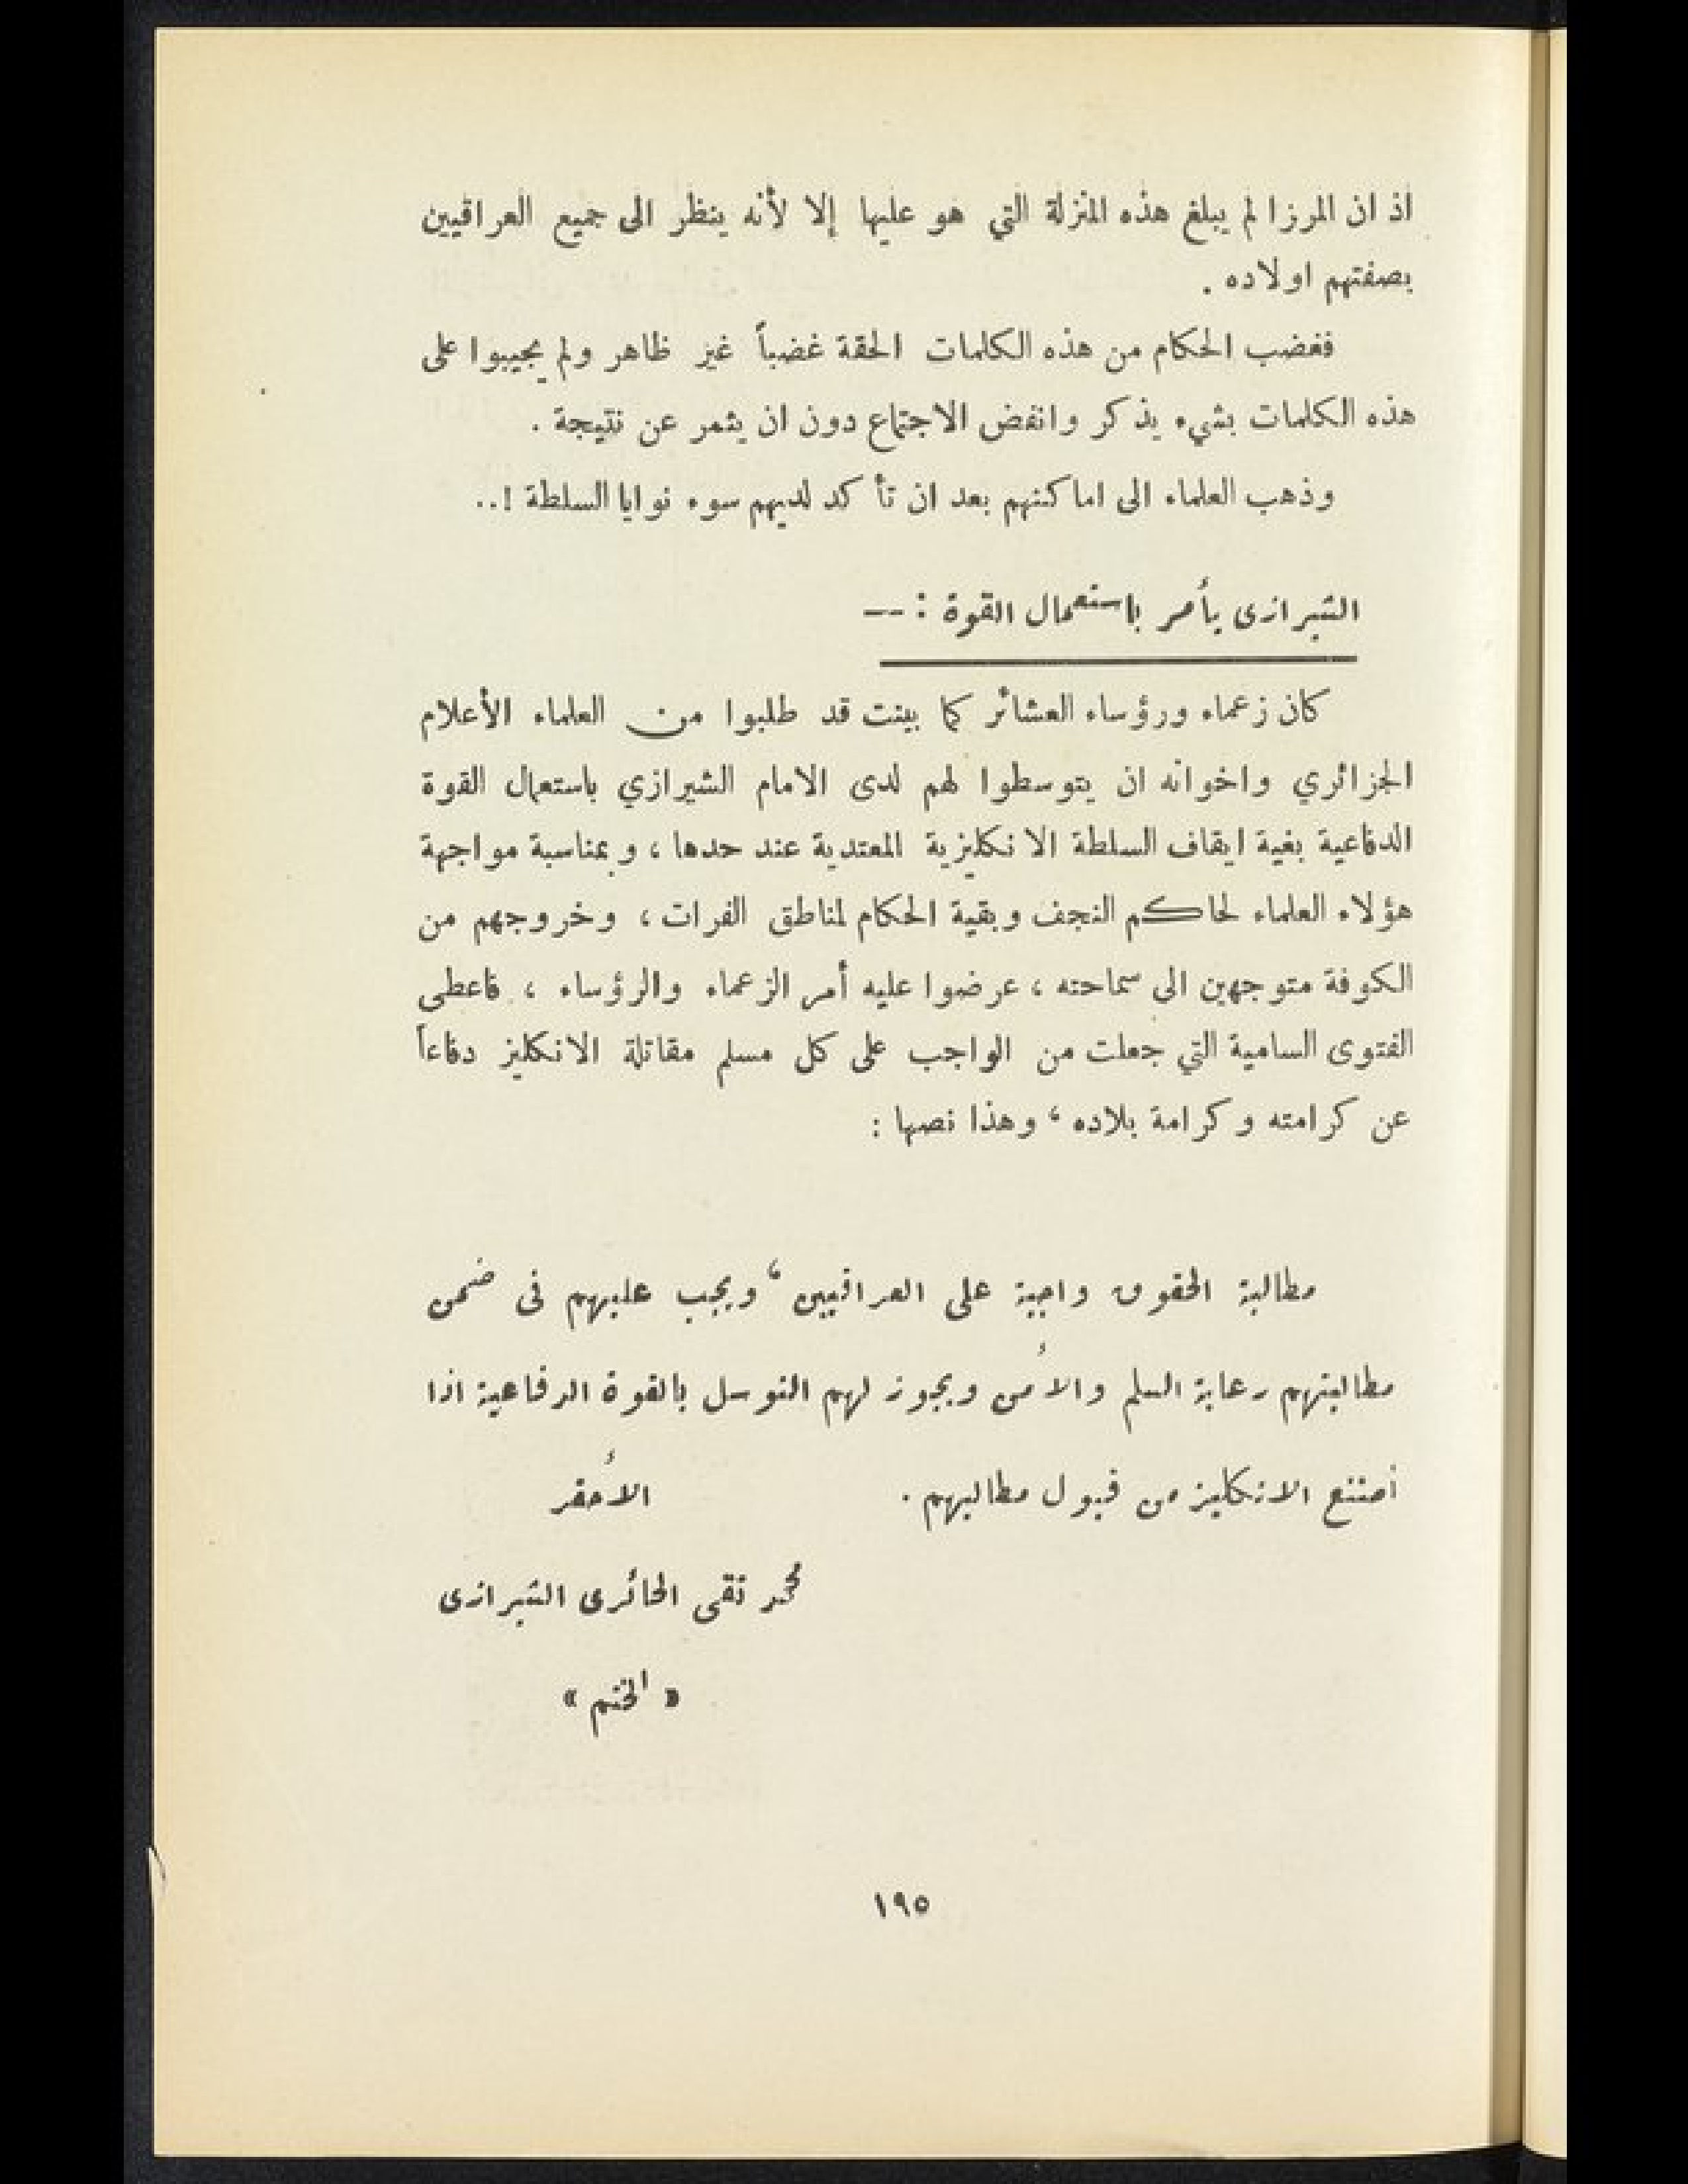 اذ ان المرزا لم يبلغ هذه المنزلة التي هو عليها إلا لأنه ينظر الى جميع العراقيين
بصفتهم اولاده .
فغضب الحكام من هذه الكلمات الحقة غضباً غير ظاهر ولم يجيبوا على
هذه الكلمات بشيء يذكر وانفض الاجتماع دون ان يثمر عن نتيجة .
وذهب العلماء الى اماكنهم بعد ان تأكد لديهم سوء نوايا السلطة !..
الشيرازى يأمر باستعمال القوة : —
كان زعماء ورؤساء العشائر كما بينت قد طلبوا من العلماء الأعلام
الجزائري واخوانه ان يتوسطوا لهم لدى الامام الشيرازي باستعمال القوة
الدفاعية بغية ايقاف السلطة الانكليزية المعتدية عند حدها ، وبمناسبة مواجهة
هؤلاء العلماء لحاكم النجف وبقية الحكام لمناطق الفرات ، وخروجهم من
الكوفة متوجهين الى سماحته ، عرضوا عليه أمر الزعماء والرؤساء ، فاعطى
الفتوى السامية التي جعلت من الواجب على كل مسلم مقاتلة الانكليز دفاعاً
عن كرامته وكرامة بلاده ، وهذا نصها :
مطالبة الحقوق واجبة على العراقيين ، ويجب عليهم فى ضمن
مطالبتهم رعاية السلم والأمن ويجوز لهم التوسل بالقوة الدفاعية اذا
امتنع الانكليز من قبول مطالبهم . الأحقر
محمد تقى الحائرى الشيرازى
« الختم »
١٩٥